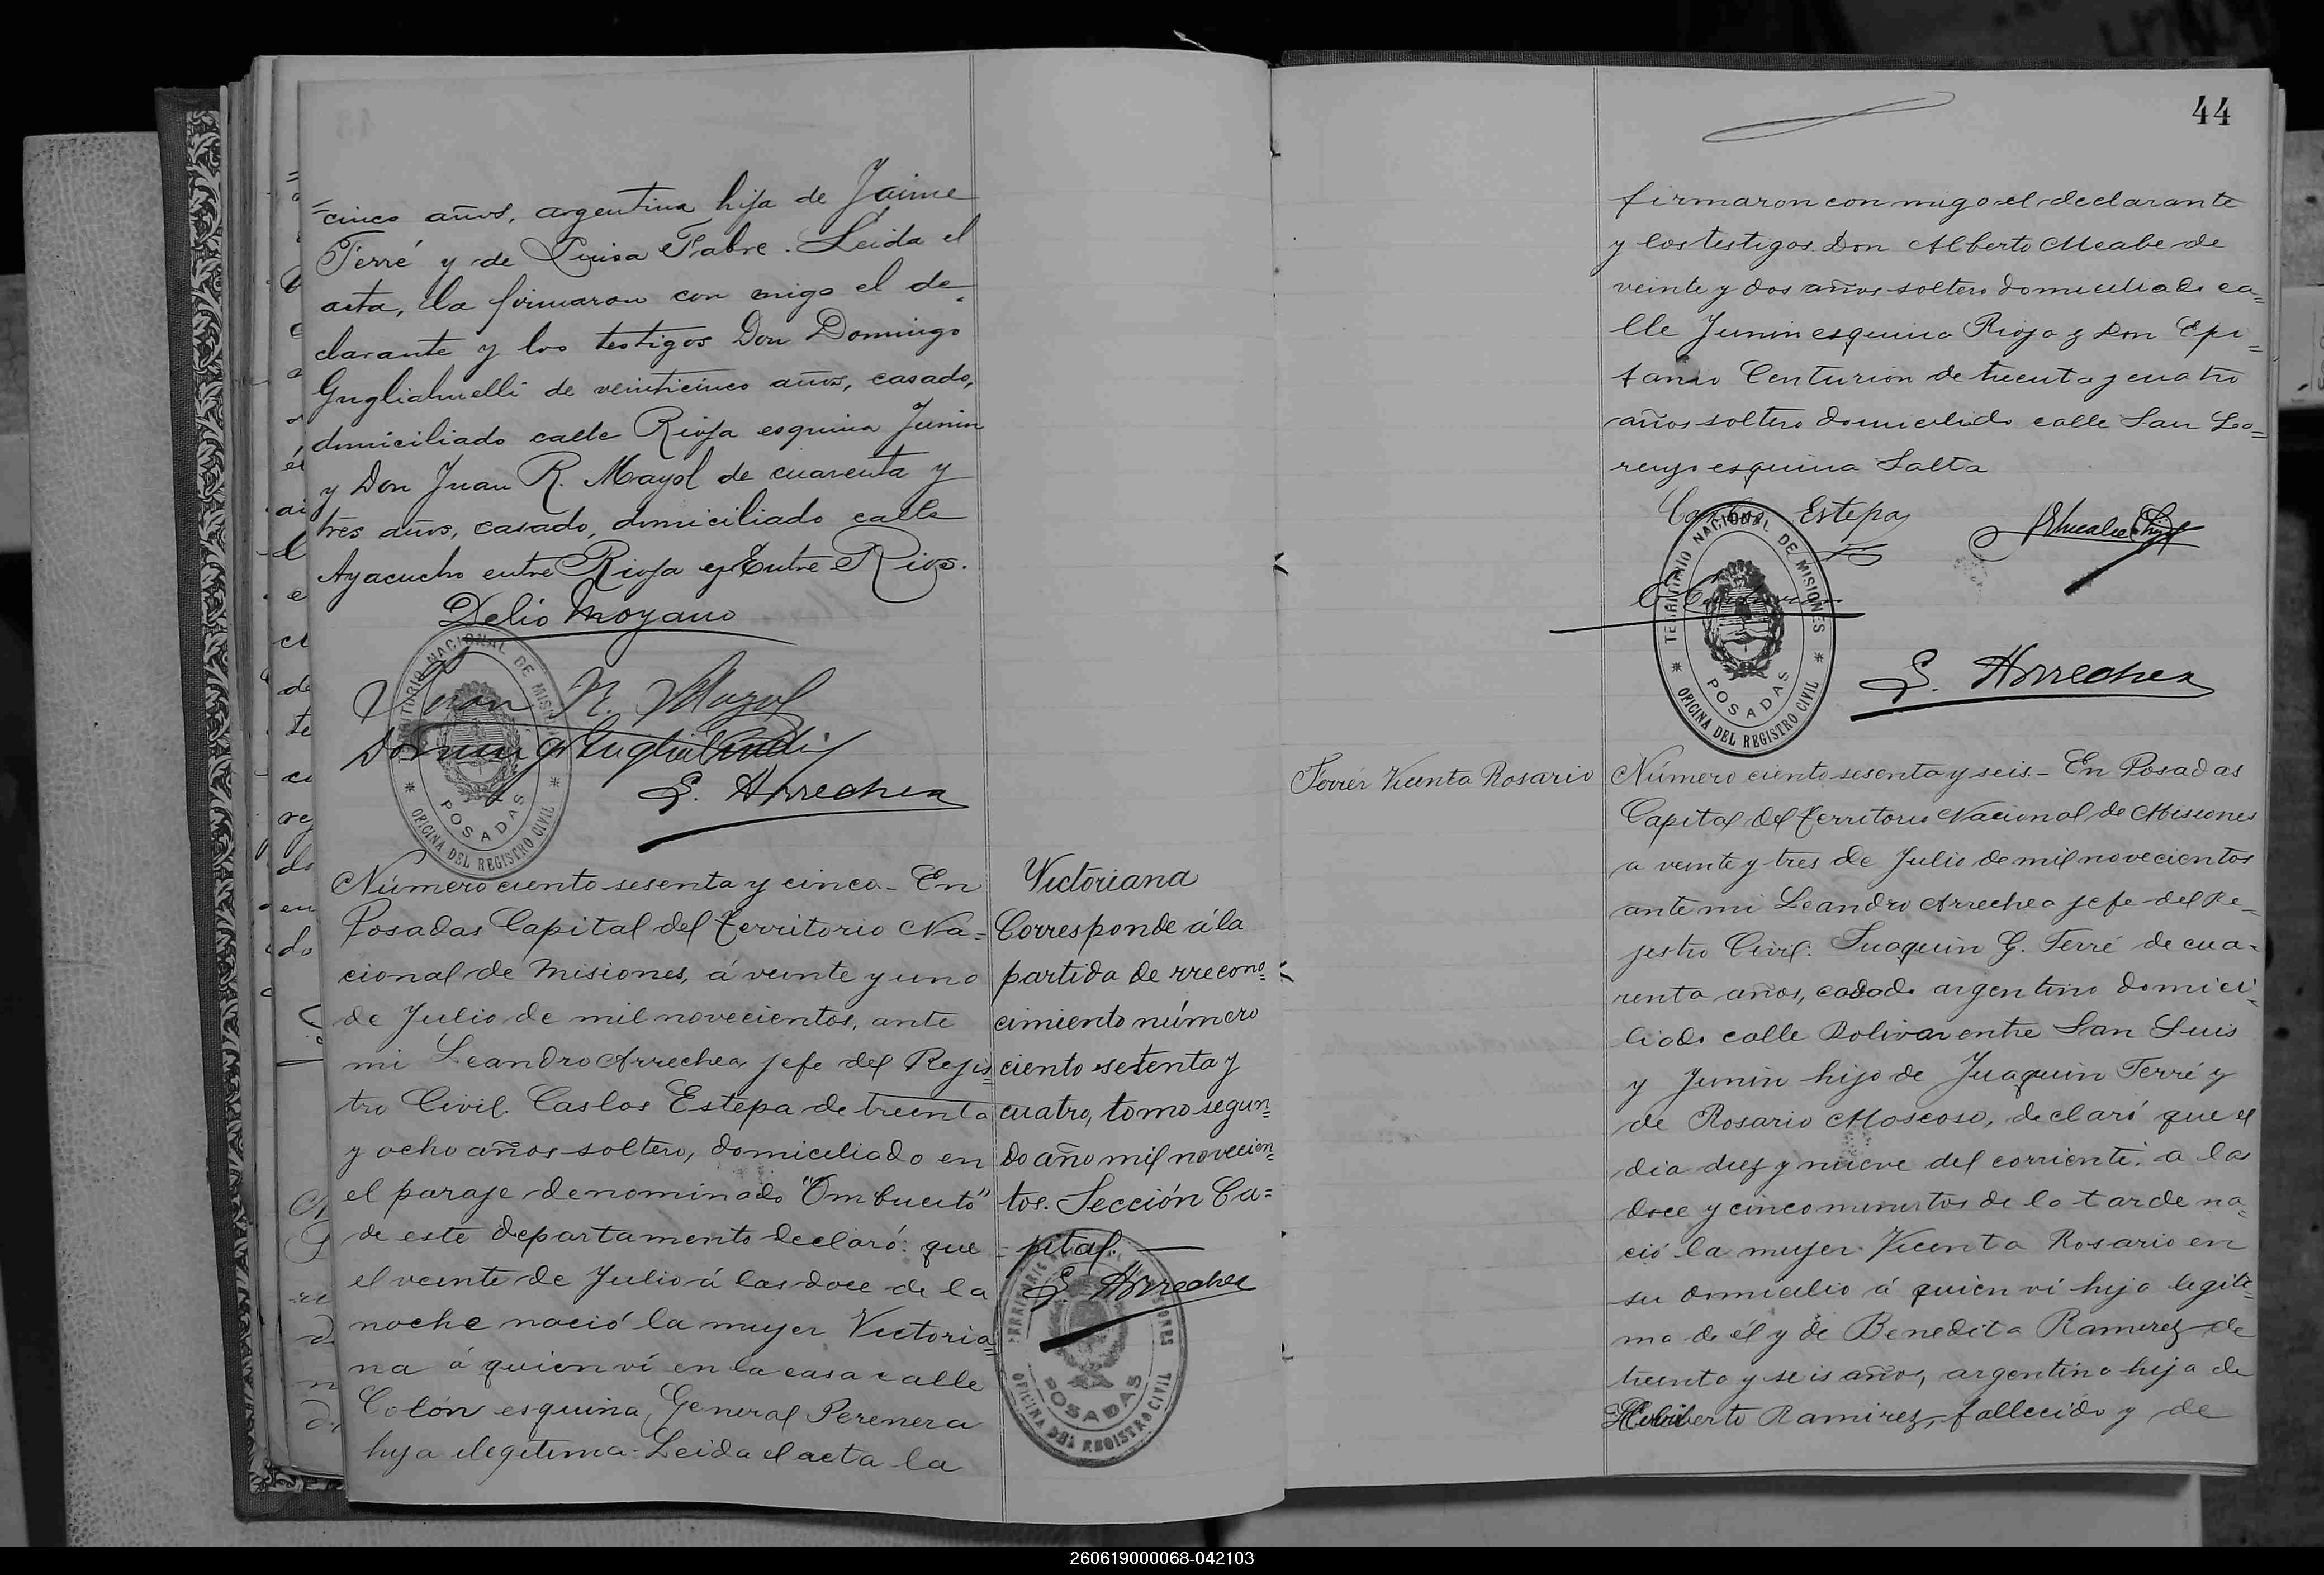 cinco años, argentina hija de Jaime
Ferré y de Luisa Fabre. Leida el
acta, la firmaron con migo el de=
clarante y los testigos Don Domingo
Gugliahuelli de veinticinco años, casado,
domiciliado calle Rioja esquina Junin
y Don Juan R. Mayol de cuarenta y
tres años, casado, domiciliado calle
Ayacucho entre Rioja y Entre Rios.
Delio Moyano
Juan R. Mayol
Domingo
L. Arrechea
TERRITORIO NACIONAL DE MISIONES
POSADAS
OFICINA DEL REGISTRO CIVIL
Número ciento sesenta y cinco - En
Posadas Capital del territorio Na=
cional de Misiones, á veinte y uno
de Julio de mil novecientos, ante
mi Leandro Arrechea jefe del Rejis=
tro Civil. Caslos Estepa de treinta
y ocho años soltero, domiciliado en
el paraje denominado "Ombucito"
de este departamento declaró: que
el veinte de Julio á las doce de la
noche nació la mujer Victoria=
na á quien ví en la casa calle
Colón esquina General Perenera
hija ilegitima. Leida el acta la
Victoriana
Corresponde á la
partida de rrecono=
cimiento número
ciento setenta y
cuatro, tomo segun=
do año mil novecien=
tos. Sección Ca=
pital.
L. Arrechea
TERRITORIO NACIONAL DE MISIONES
POSADAS
OFICINA DEL REGISTRO CIVIL
44
firmaron con migo el declarante
y los testigos Don Alberto Meabe de
veinte y dos años soltero domiciliado ca=
lle Junin esquina Rioja y Don Epi=
fanio Centurion de treinta y cuatro
años soltero domiciliado calle San Lo=
renzo esquina Salta
Carlos Estepa
L. Arrechea
TERRITORIO NACIONAL DE MISIONES
POSADAS
OFICINA DEL REGISTRO CIVIL
Ferrér Vicenta Rosario
Número ciento sesenta y seis - En Posadas
Capital del territorio Nacional de Misiones
a veinte y tres de Julio de mil novecientos
ante mi Leandro Arrechea jefe del Re=
jistro Civil: Juaquin G. Ferré de cua=
renta años, casado argentino domici=
liado calle Bolivar entre San Luis
y Junin hijo de Juaquin Ferré y
de Rosario Moscoso, declaró que el
dia diez y nueve del corriente á las
doce y cinco minutos de la tarde na=
ció la mujer Vicenta Rosario en
su domicilio á quien ví hija legiti=
ma de él y de Benedita Ramirez de
treinta y seis años, argentina hija de
Heriberto Ramirez, fallecido y de
260619000068-042103